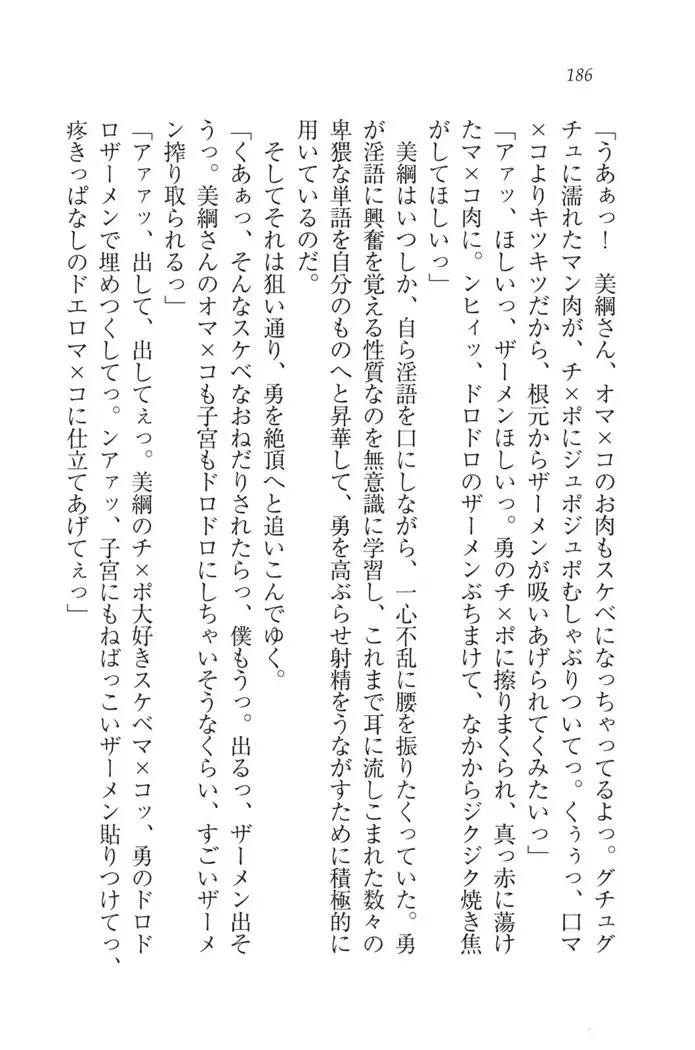 186
「うあぁっ！　美綱さん、オマ×コのお肉もスケベになっちゃってるよっ。グチュグ
チュに濡れたマン肉が、チ×ポにジュポジュポむしゃぶりついてっ。くぅぅっ、口マ
×コよりキツキツだから、根元からザーメンが吸いあげられてくみたいっ」
「アァッ、ほしいっ、ザーメンほしいっ。勇のチ×ポに擦りまくられ、真っ赤に蕩け
たマ×コ肉に。ンヒィッ、ドロドロのザーメンぶちまけて、なかからジクジク焼き焦
がしてほしいっ」
　美綱はいつしか、自ら淫語を口にしながら、一心不乱に腰を振りたくっていた。勇
が淫語に興奮を覚える性質なのを無意識に学習し、これまで耳に流しこまれた数々の
卑猥な単語を自分のものへと昇華して、勇を高ぶらせ射精をうながすために積極的に
用いているのだ。
　そしてそれは狙い通り、勇を絶頂へと追いこんでゆく。
「くあぁっ、そんなスケベなおねだりされたらっ、僕もうっ。出るっ、ザーメン出そ
うっ。美綱さんのオマ×コも子宮もドロドロにしちゃいそうなくらい、すごいザーメ
ン搾り取られるっ」
「アァァッ、出して、出してぇっ。美綱のチ×ポ大好きスケベマ×コッ、勇のドロド
ロザーメンで埋めつくしてっ。ンアァッ、子宮にもねばっこいザーメン貼りつけてっ、
疼きっぱなしのドエロマ×コに仕立てあげてぇっ」